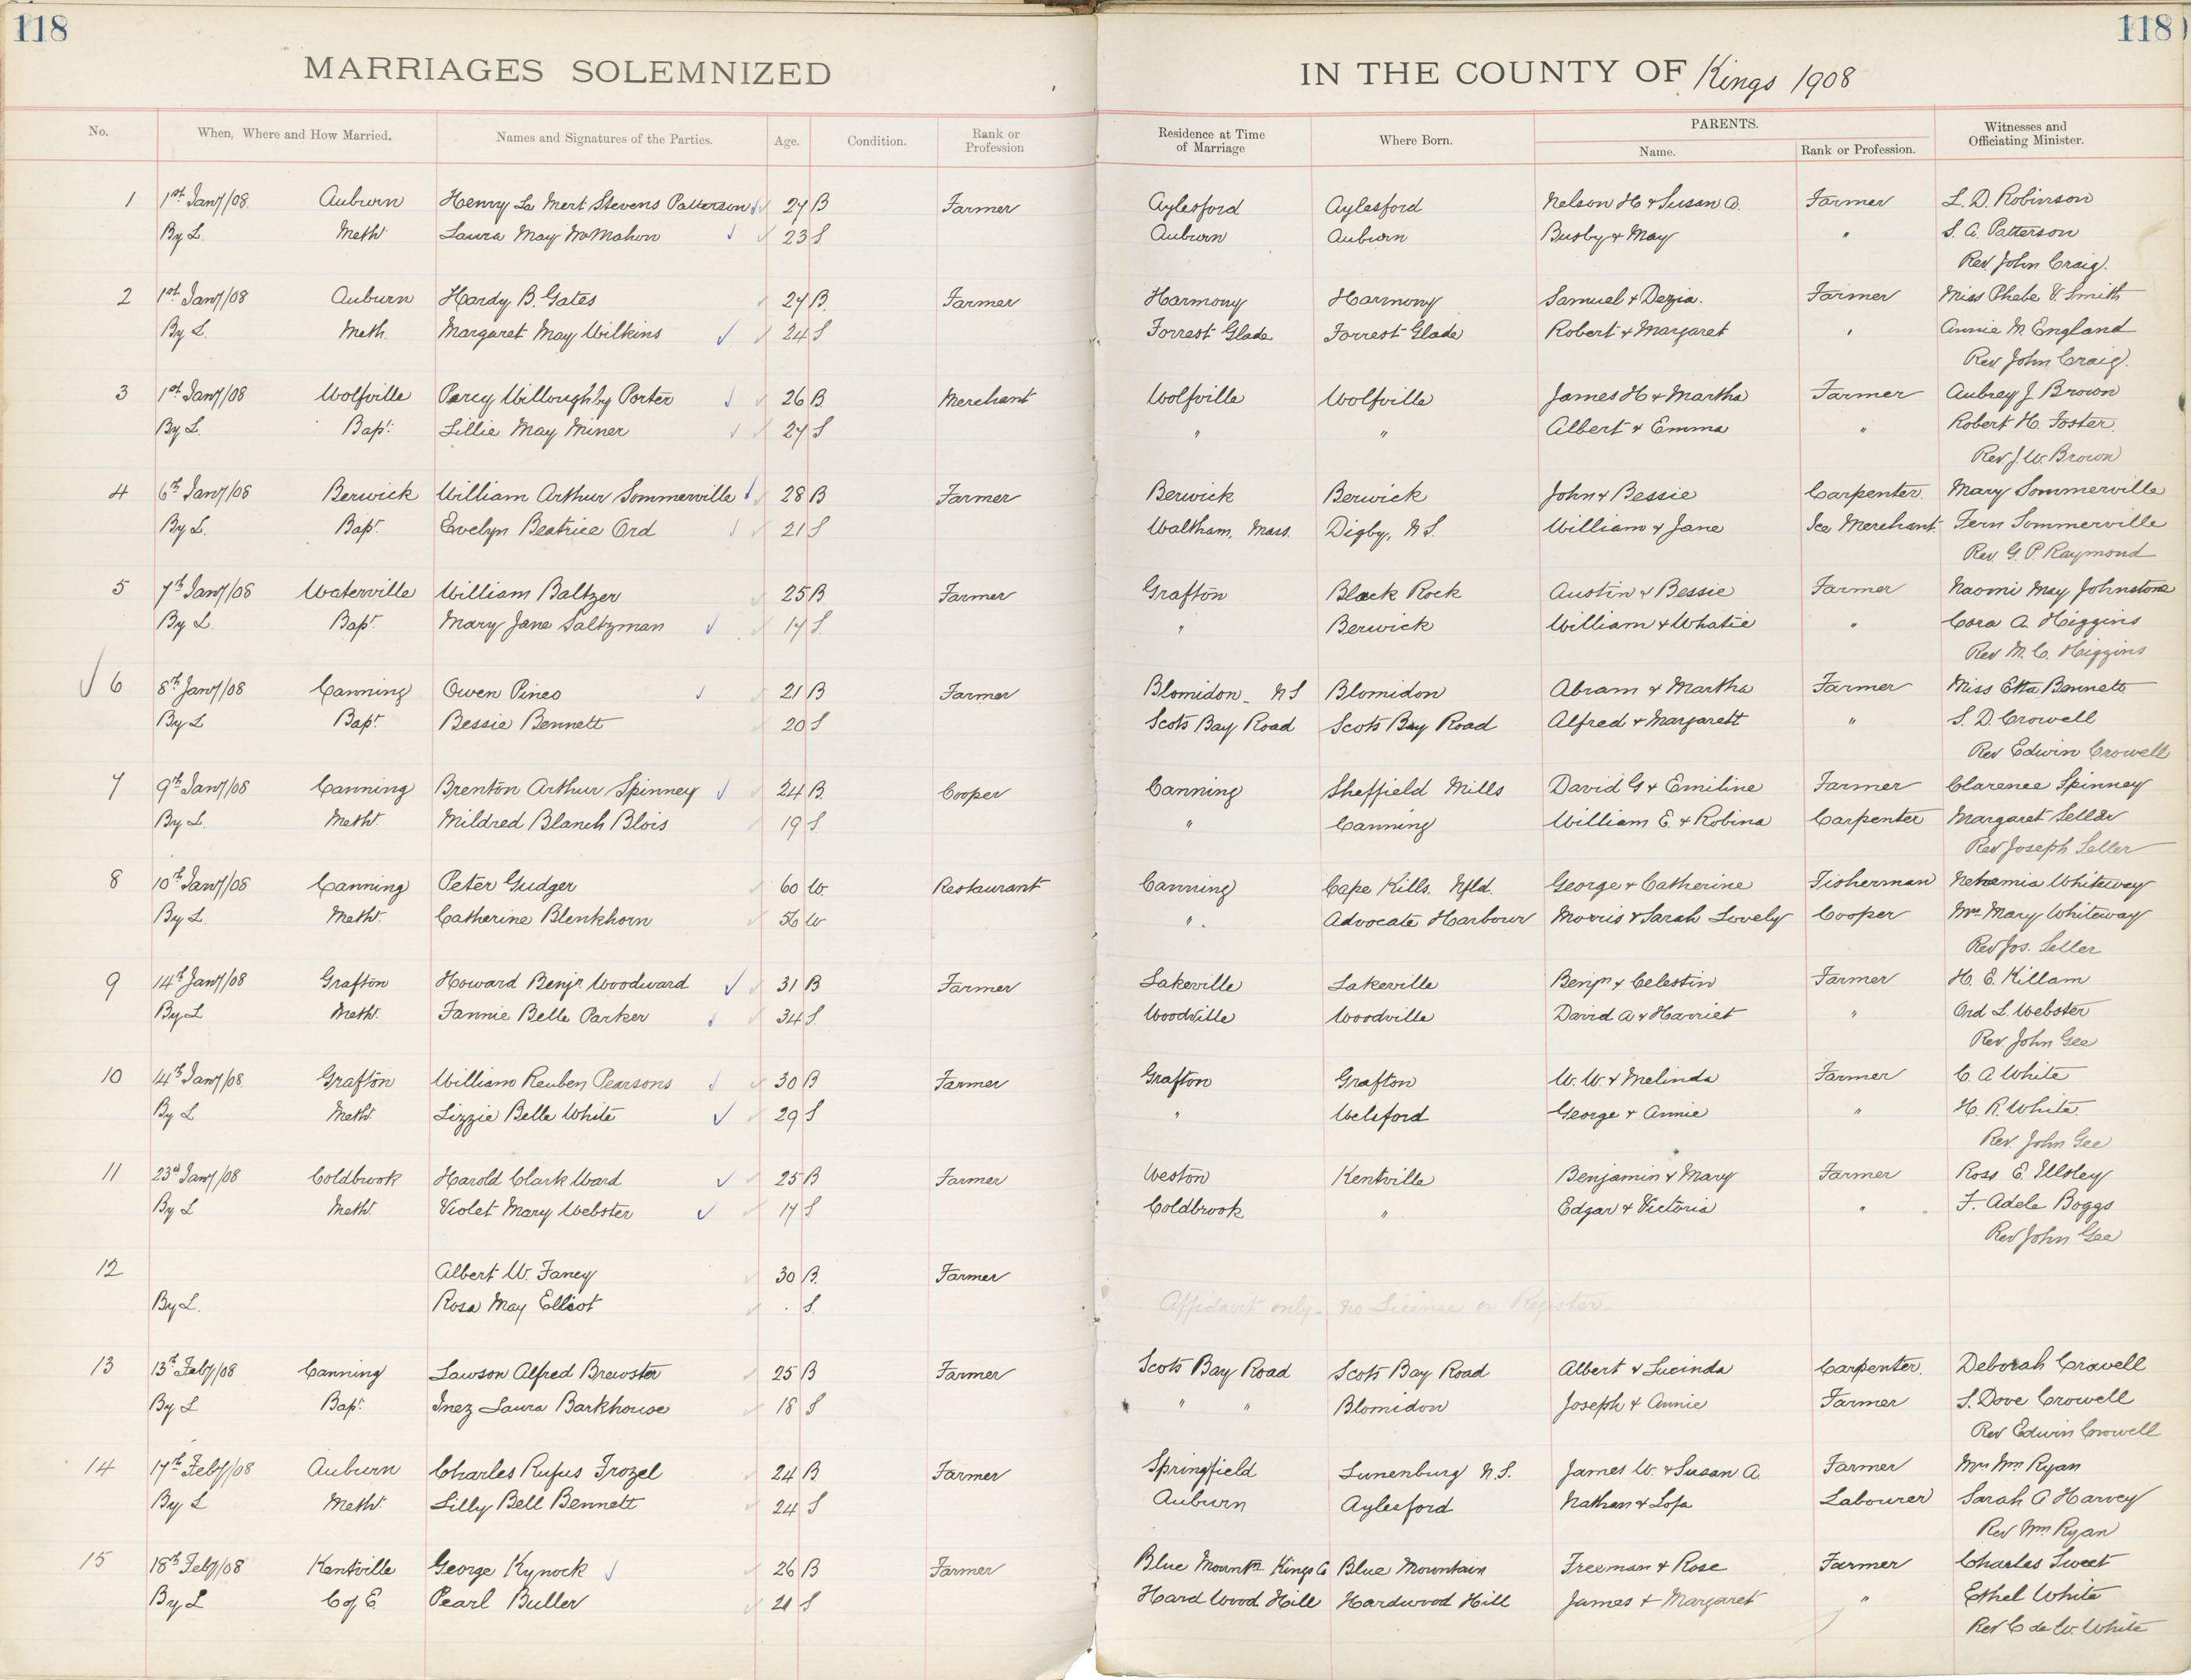 118 118
MARRIAGES SOLEMNIZED IN THE COUNTY OF Kings 1908
No. When, Where and How Married. Names and Signatures of the Parties. Age. Condition. Rank or Profession Residence at Time of Marriage Where Born. PARENTS. Name. Rank or Profession. Witnesses and Officiating Minister.
1 1st Jany/08 Auburn Henry La Mert Stevens Patterson 27 B Farmer Aylesford Aylesford Nelson H & Susan A. Farmer L. D. Robinson
By L. Meth. Laura May McMahon 23 S Auburn Auburn Busby & May " S. A. Patterson
Rev. John Craig.
2 1st Jany/08 Auburn Hardy B. Gates 27 B. Farmer Harmony Harmony Samuel & Dezia. Farmer Miss Phebe V. Smith
By L. Meth. Margaret May Wilkins 24 S Forrest Glade Forrest Glade Robert & Margaret " Annie M. England
Rev John Craig.
3 1st Jany/08 Wolfville Percy Willoughby Porter 26 B. Merchant Wolfville Wolfville James H & Martha Farmer Aubrey J. Brown
By L. Bapt. Lillie May Miner 27 S " " Albert & Emma " Robert H. Foster.
Rev J. W. Brown
4 6th Jany/08 Berwick William Arthur Sommerville 28 B Farmer Berwick Berwick John & Bessie Carpenter. Mary Sommerville
By L. Bapt. Evelyn Beatrice Ord 21 S Waltham, Mass. Digby, N.S. William & Jane Ice Merchant. Fern Sommerville
Rev. G. P. Raymond
5 7th Jany/08 Waterville William Baltzer 25 B Farmer Grafton Black Rock Austin & Bessie Farmer Naomi May Johnstone
By L. Bapt. Mary Jane Saltzman 17 S. " Berwick William & Whatie " Cora A. Higgins
Rev M. C. Higgins
6 8th Jany/08 Canning Owen Pineo 21 B Farmer Blomidon - N S Blomidon Abram & Martha Farmer Miss Etta Bennett
By L Bapt. Bessie Bennett 20 S Scots Bay Road Scots Bay Road Alfred & Margarett " S. D. Crowell
Rev Edwin Crowell
7 9th Jany/08 Canning Brenton Arthur Spinney 24 B. Cooper Canning Sheffield Mills David G & Emiline Farmer Clarence Spinney
By L. Meth. Mildred Blanch Blois 19 S. " Canning William E. & Robina Carpenter Margaret Seller
Rev Joseph Seller
8 10th Jany/08 Canning Peter Gudger 60 W. Restaurant Canning Cape Kills. Nfld. George & Catherine Fisherman Nehemia Whiteway
By L. Meth. Catherine Blenkhorn 56 W " Advocate Harbour Morris & Sarah Lovely Cooper Mrs Mary Whiteway
Rev Jos. Seller
9 14th Jany/08 Grafton Howard Benjn Woodward 31 B Farmer Lakeville Lakeville Benjn & Celestin Farmer H. E. Killam
By L Meth. Fannie Belle Parker 34 S. Woodville Woodville David A & Harriet " Ord L. Webster
Rev. John Gee
10 14th Jany/08 Grafton William Reuben Pearsons 30 B Farmer Grafton Grafton W. W. & Melinda Farmer C. A White
By L Meth. Lizzie Belle White 29 S " Welsford George & Annie " H. R. White.
Rev. John Gee
11 23rd Jany/08 Coldbrook Harold Clark Ward 25 B Farmer Weston Kentville Benjamin & Mary Farmer Ross E. Illsley
By L Meth. Violet Mary Webster 17 S Coldbrook " Edgar & Victoria " F. Adele Boggs
Rev John Gee
12 Albert W. Faney 30 B. Farmer
By L. Rosa May Elliot . S. Affidavit only - no License or Register
13 13th Feby/08 Canning Lawson Alfred Brewster 25 B Farmer Scots Bay Road Scots Bay Road Albert & Lucinda Carpenter. Deborah Crowell
By L Bapt. Inez Laura Barkhouse 18 S " " Blomidon Joseph & Annie Farmer S. Dove Crowell
Rev Edwin Crowell
14 17th Feby/08 Auburn Charles Rufus Frozel 24 B Farmer Springfield Lunenburg N.S. James W. & Susan A. Farmer Mrs Wm Ryan
By L Meth. Lilly Bell Bennett 24 S Auburn Aylesford Nathan & Lofa Labourer Sarah A Harvey
Rev Wm Ryan
15 18th Feby/08 Kentville George Kynock 26 B Farmer Blue Mountn Kings Co Blue Mountain Freeman & Rose Farmer Charles Sweet
By L C of E. Pearl Buller 21 S Hard Wood Hill Hardwood Hill James & Margaret " Ethel White
Rev C de W. White